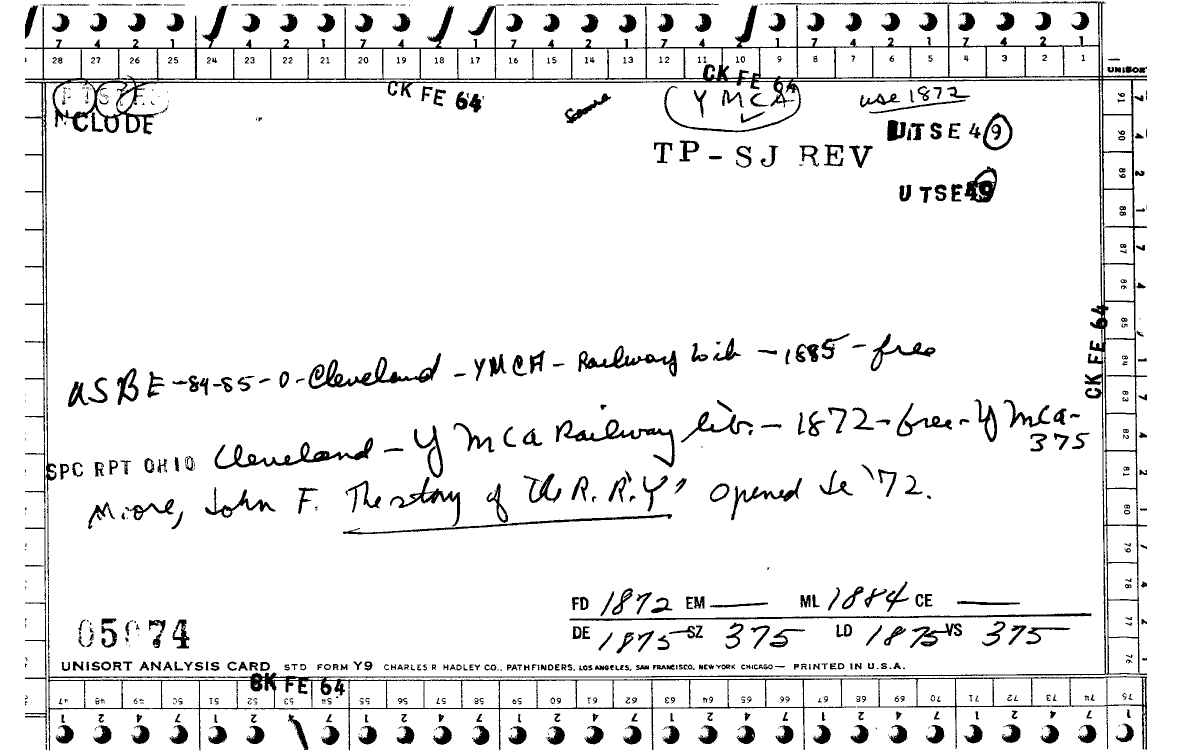 7 4 2 1 7 4 2 1 7 4 2 1 7 4 2 1 7 4 2 1 7 4 2 1 7 4 2 1
28 27 26 25 24 23 22 21 20 19 18 17 16 15 14 13 12 11 10 9 8 7 6 5 4 3 2 1
UNISORT
CK FE 64
CK FE 64
YMCA
use 1872
UTSE 49
NCLUDE
TP-SJ REV
UTSE49
CK FE 64
ASBE-84-85-O-Cleveland-YMCA-Railway Lib-1885-free
SPC RPT OHIO Cleveland-YMCA Railway lib.-1872-free-YMCA-
375
Moore, John F. The story of the R.R."Y" opened in '72.
FD 1872 EM — ML 1884 CE —
DE 1875 SZ 375 LD 1875 VS 375
05974
UNISORT ANALYSIS CARD STD FORM Y9 CHARLES R HADLEY CO., PATHFINDERS, LOS ANGELES, SAN FRANCISCO, NEW YORK CHICAGO— PRINTED IN U.S.A.
CK FE 64
47 48 49 50 51 52 53 54 55 56 57 58 59 60 61 62 63 64 65 66 67 68 69 70 71 72 73 74 75
1 2 4 7 1 2 4 7 1 2 4 7 1 2 4 7 1 2 4 7 1 2 4 7 1 2 4 7 1
91 90 89 88 87 86 85 84 83 82 81 80 79 78 77 76